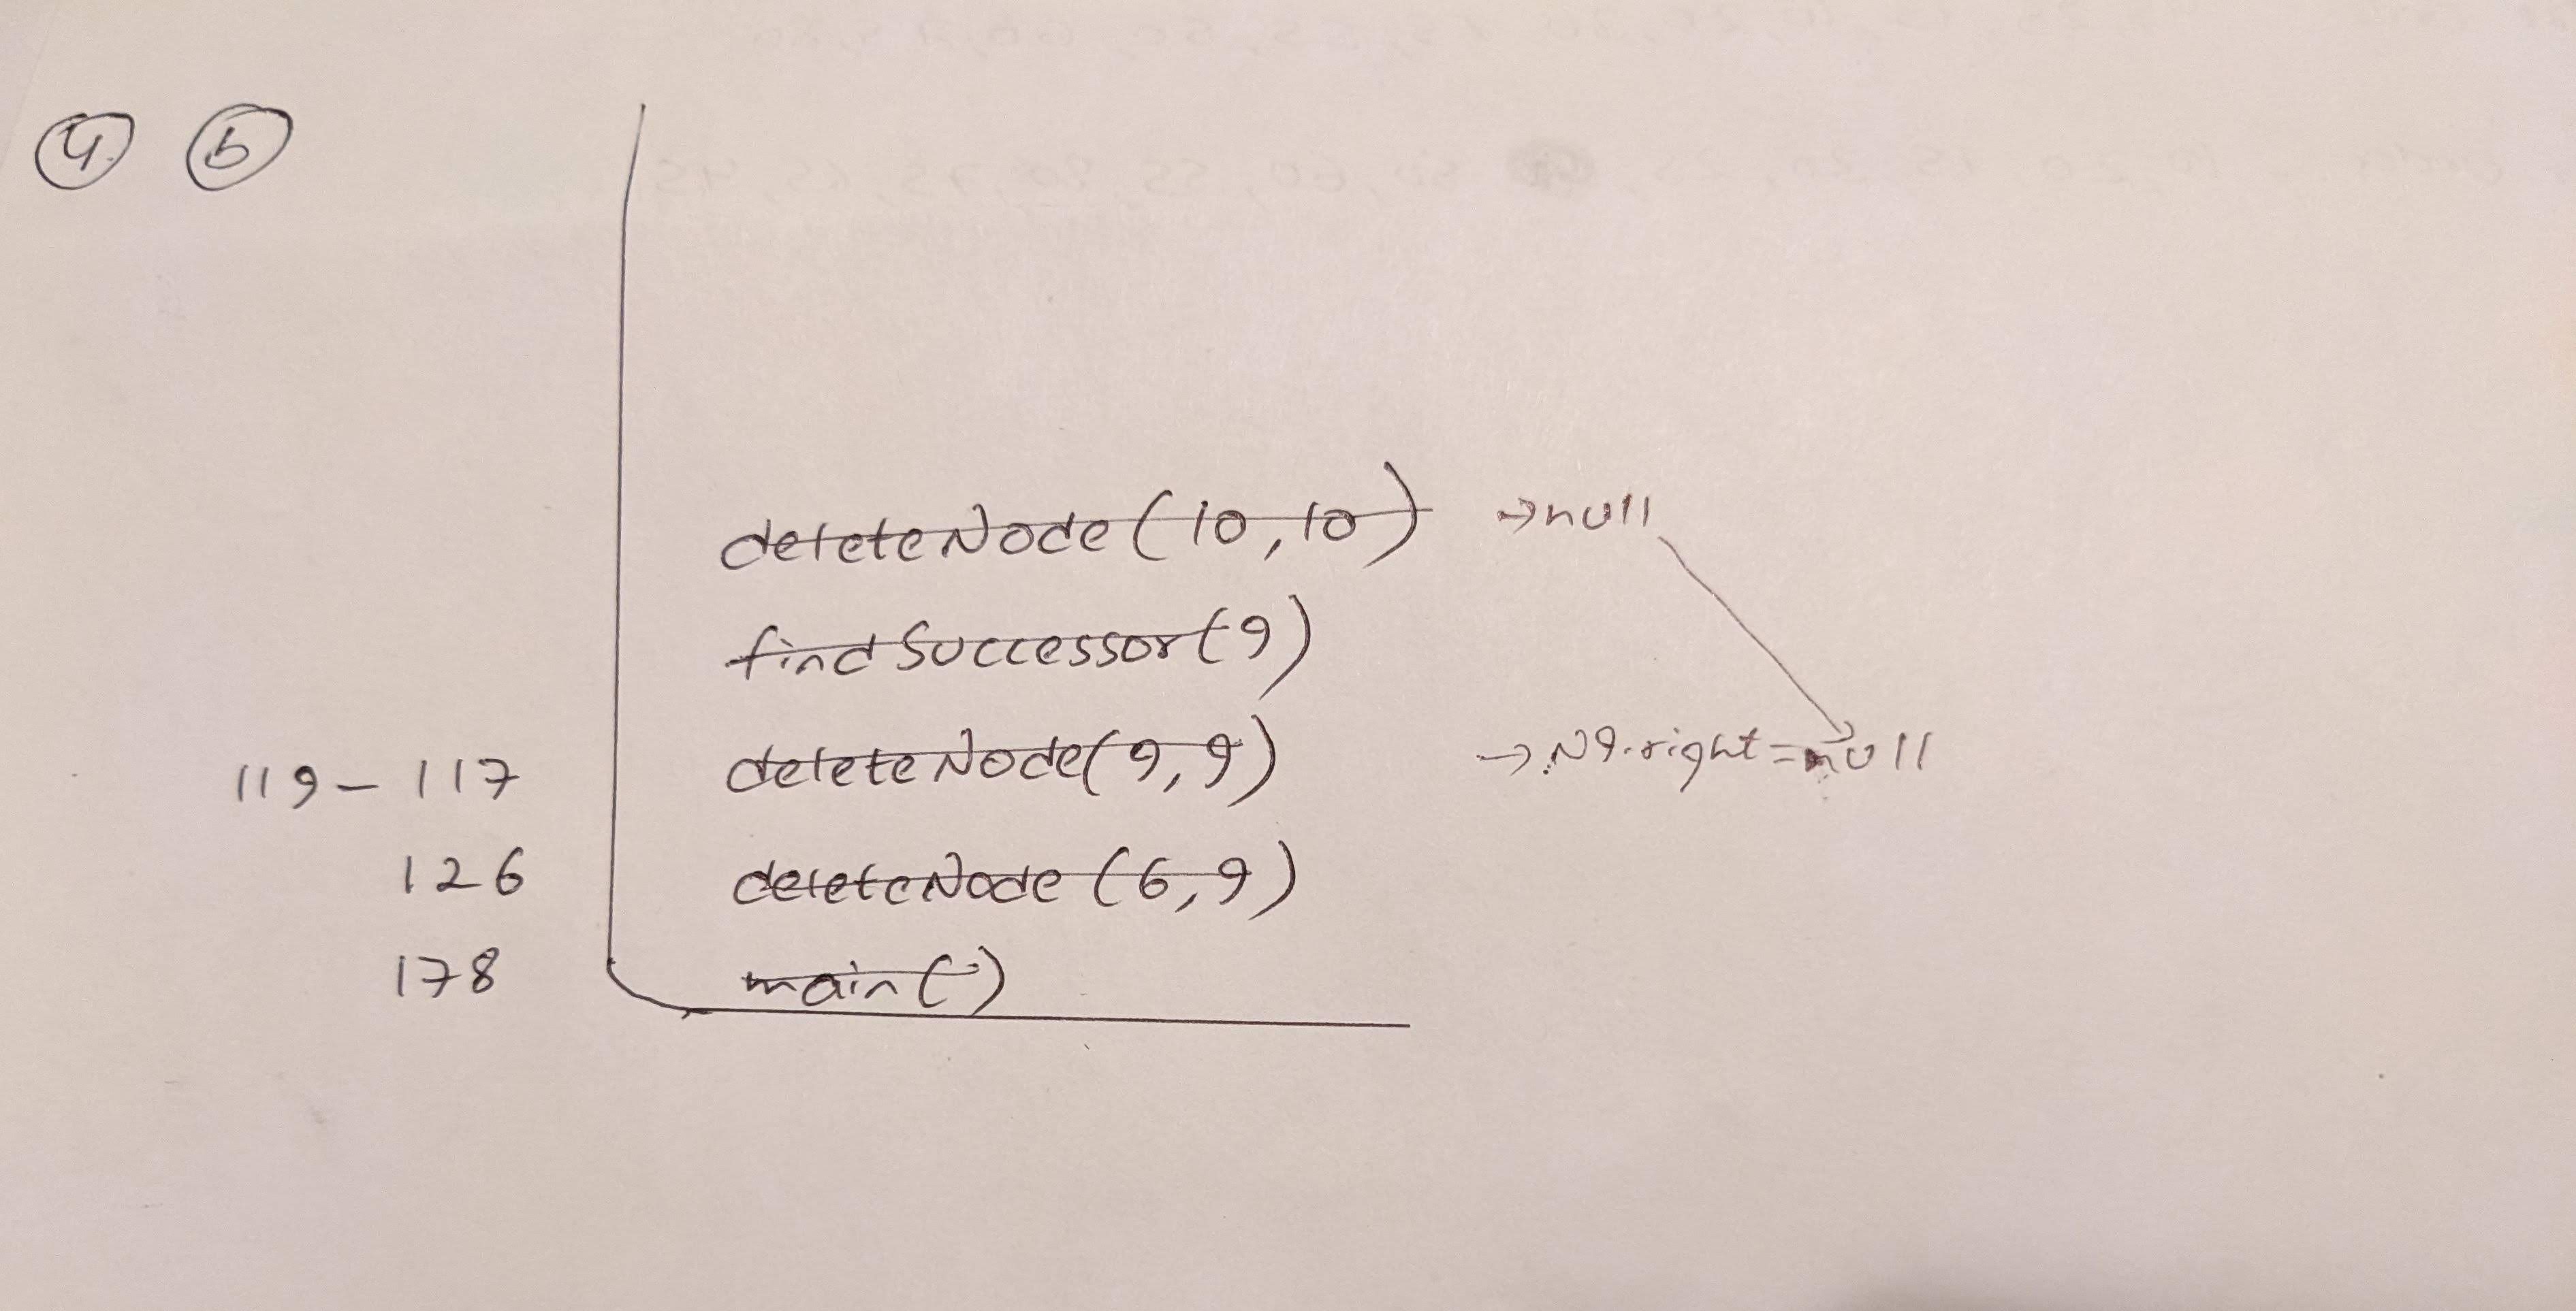 4. b
deleteNode(10,10) →null
findSuccessor(9)
119-117 deleteNode(9,9) →N9.right=null
126 deleteNode(6,9)
178 main()